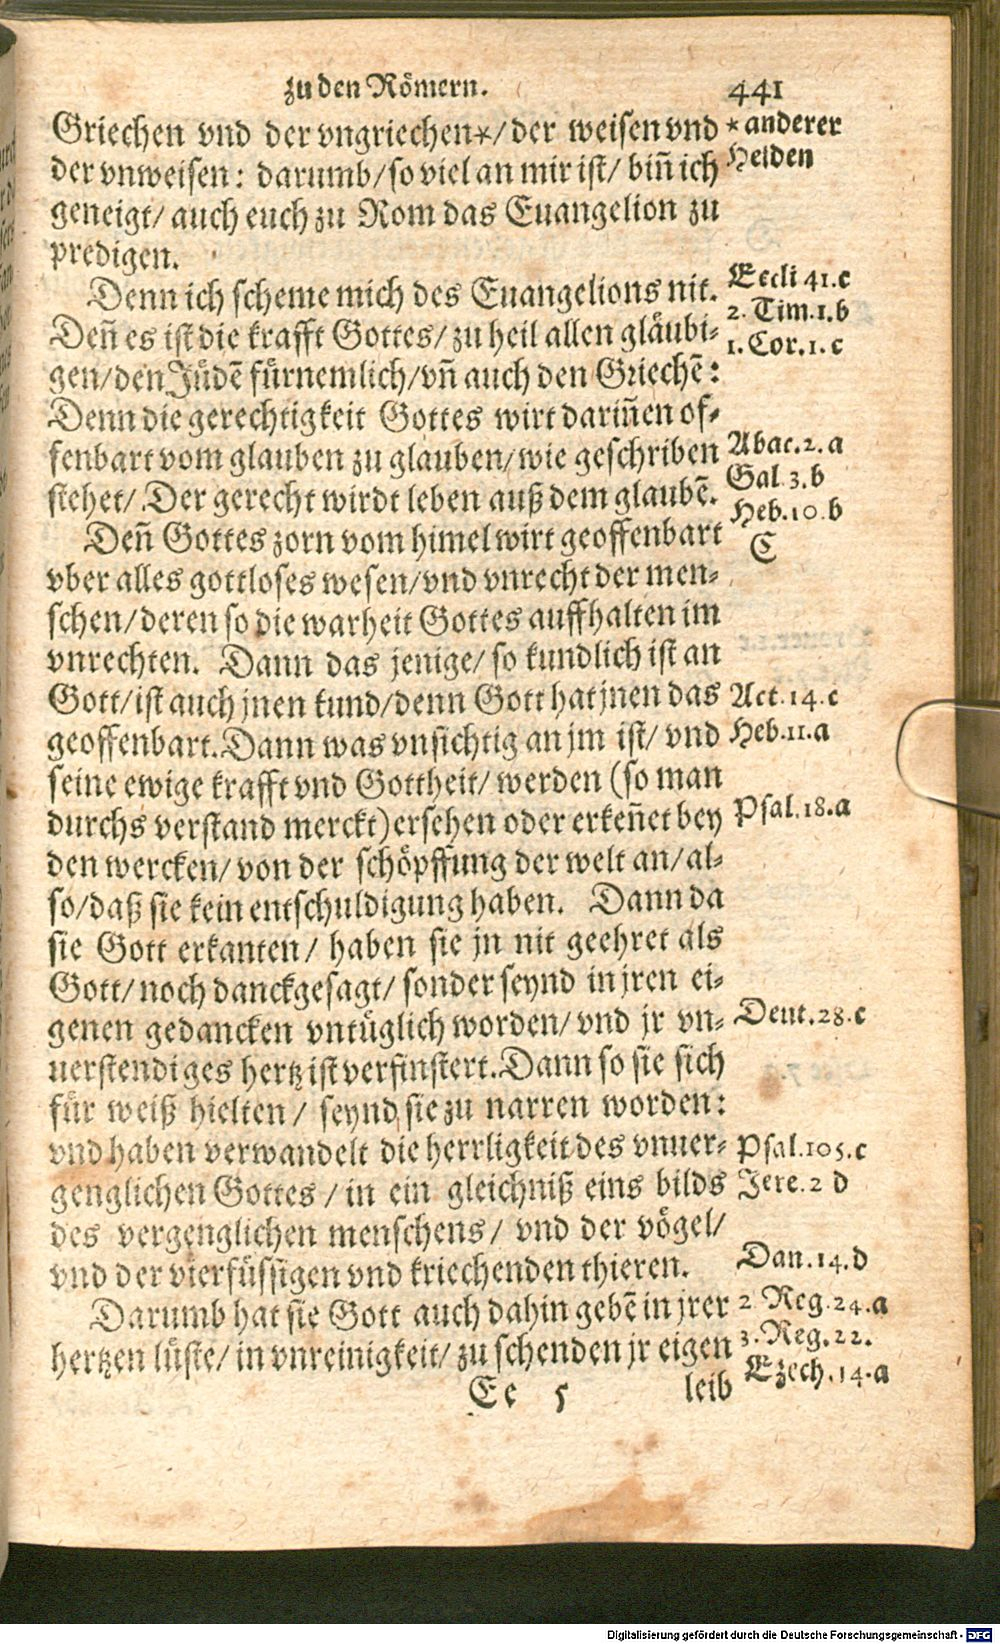 zu den Römern. 441
Griechen vnd der vngriechen*/der weisen vnd
der vnweisen: darumb/so viel an mir ist/ biñ ich
geneigt/ auch euch zu Rom das Euangelion zu
predigen.
Denn ich scheme mich des Euangelions nit.
Deñ es ist die krafft Gottes/ zu heil allen gläubi-
gen/den Jüdẽ fürnemlich/vñ auch den Griechẽ:
Denn die gerechtigkeit Gottes wirt dariñen of-
fenbart vom glauben zu glauben/wie geschriben
stehet/ Der gerecht wirdt leben auß dem glaubẽ.
Deñ Gottes zorn vom himel wirt geoffenbart
vber alles gottloses wesen/vnd vnrecht der men-
schen/deren so die warheit Gottes auffhalten im
vnrechten. Dann das jenige/ so kundlich ist an
Gott/ist auch jnen kund/denn Gott hat jnen das
geoffenbart. Dann was vnsichtig an jm ist/ vnd
seine ewige krafft vnd Gottheit/ werden (so man
durchs verstand merckt) ersehen oder erkeñet bey
den wercken/ von der schöpffung der welt an/al-
so/daß sie kein entschuldigung haben. Dann da
sie Gott erkanten/ haben sie jn nit geehret als
Gott/ noch danckgesagt/ sonder seynd in jren ei-
genen gedancken vntüglich worden/ vnd jr vn-
uerstendiges hertz ist verfinstert. Dann so sie sich
für weiß hielten/ seynd sie zu narren worden:
vnd haben verwandelt die herrligkeit des vnuer-
genglichen Gottes / in ein gleichniß eins bilds
des vergenglichen menschens/ vnd der vögel/
vnd der vierfüssigen vnd kriechenden thieren.
Darumb hat sie Gott auch dahin gebẽ in jrer
hertzen lüste/ in vnreinigkeit/ zu schenden jr eigen
Ee 5 leib
*anderer
Heiden
Eccli 41.c
2. Tim.1.b
1. Cor.1.c
Abac.2.a
Gal 3.b
Heb.10.b
C
Act.14.c
Heb.11.a
Psal.18.a
Deut.28.c
Psal.105.c
Jere.2 d
Dan.14.d
2 Reg.24.a
3.Reg.22.
Ezech.14.a
Digitalisierung gefördert durch die Deutsche Forschungsgemeinschaft - DFG